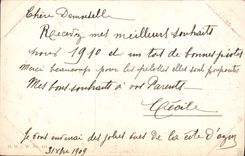 Chère Demoiselle
Recevez mes meilleurs souhaits
pour 1910 et un tas de bonnes
Merci beaucoup pour les pelotes elles sont
Mes bons souhaits à vos Parents
Cécile
Je vous envoie des jolies vues de la côte d'azur
31 Xbre 1909